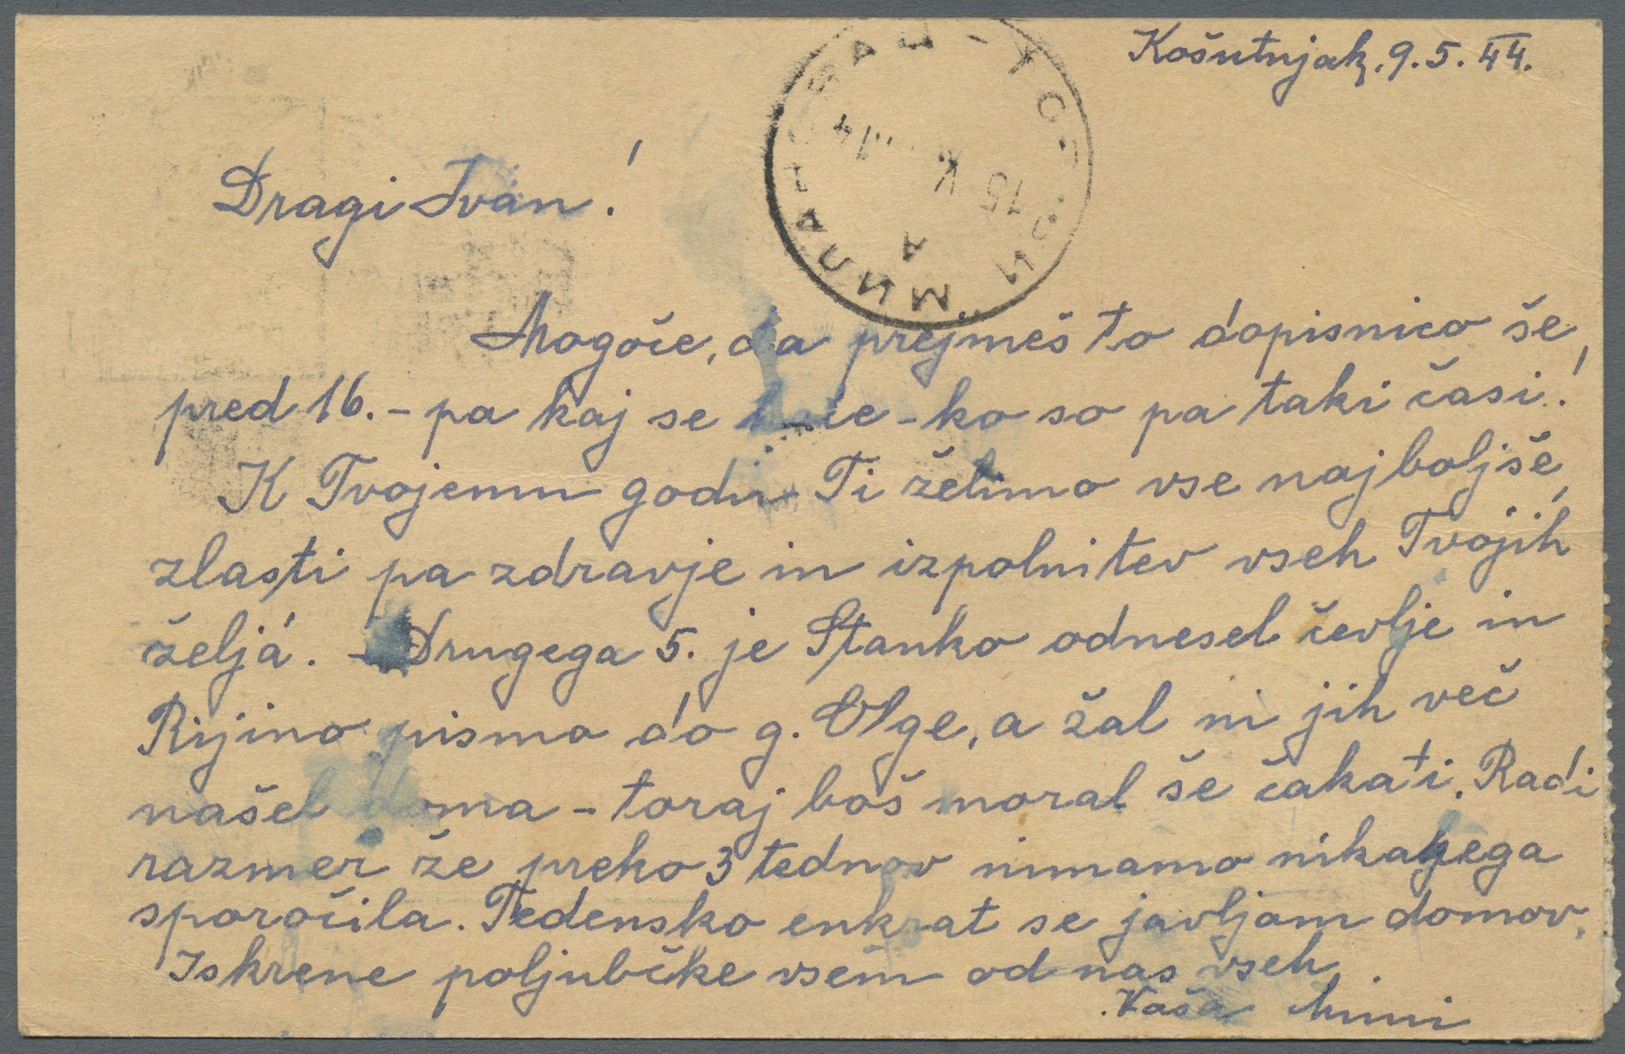 Košutnjak, 9.5.44.
15 V
A
Dragi Ivan!
Mogoče, da prejmeš to dopisnico še
pred 16. – pa kaj se – ko so pa taki časi!
K Tvojemu godu Ti želimo vse najboljše,
zlasti pa zdravje in izpolnitev vseh Tvojih
željá. – Drugega 5. je Stanko odnesel čevlje in
Rijino pismo do g. Olge, a žal ni jih več
našel doma – toraj boš moral še čakati. Radi
razmer že preko 3 tednov nimamo nikakega
sporočila. Tedensko enkrat se javljam domov.
Iskrene poljubčke vsem od nas vseh
Vaša Mimi